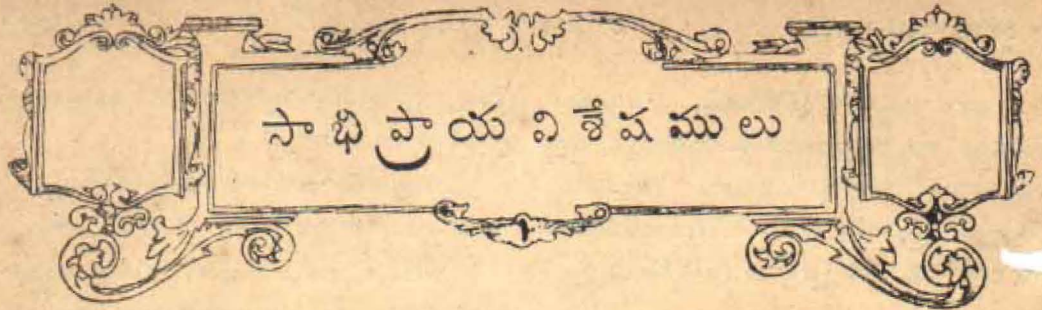 సాభిప్రాయ విశేషములు